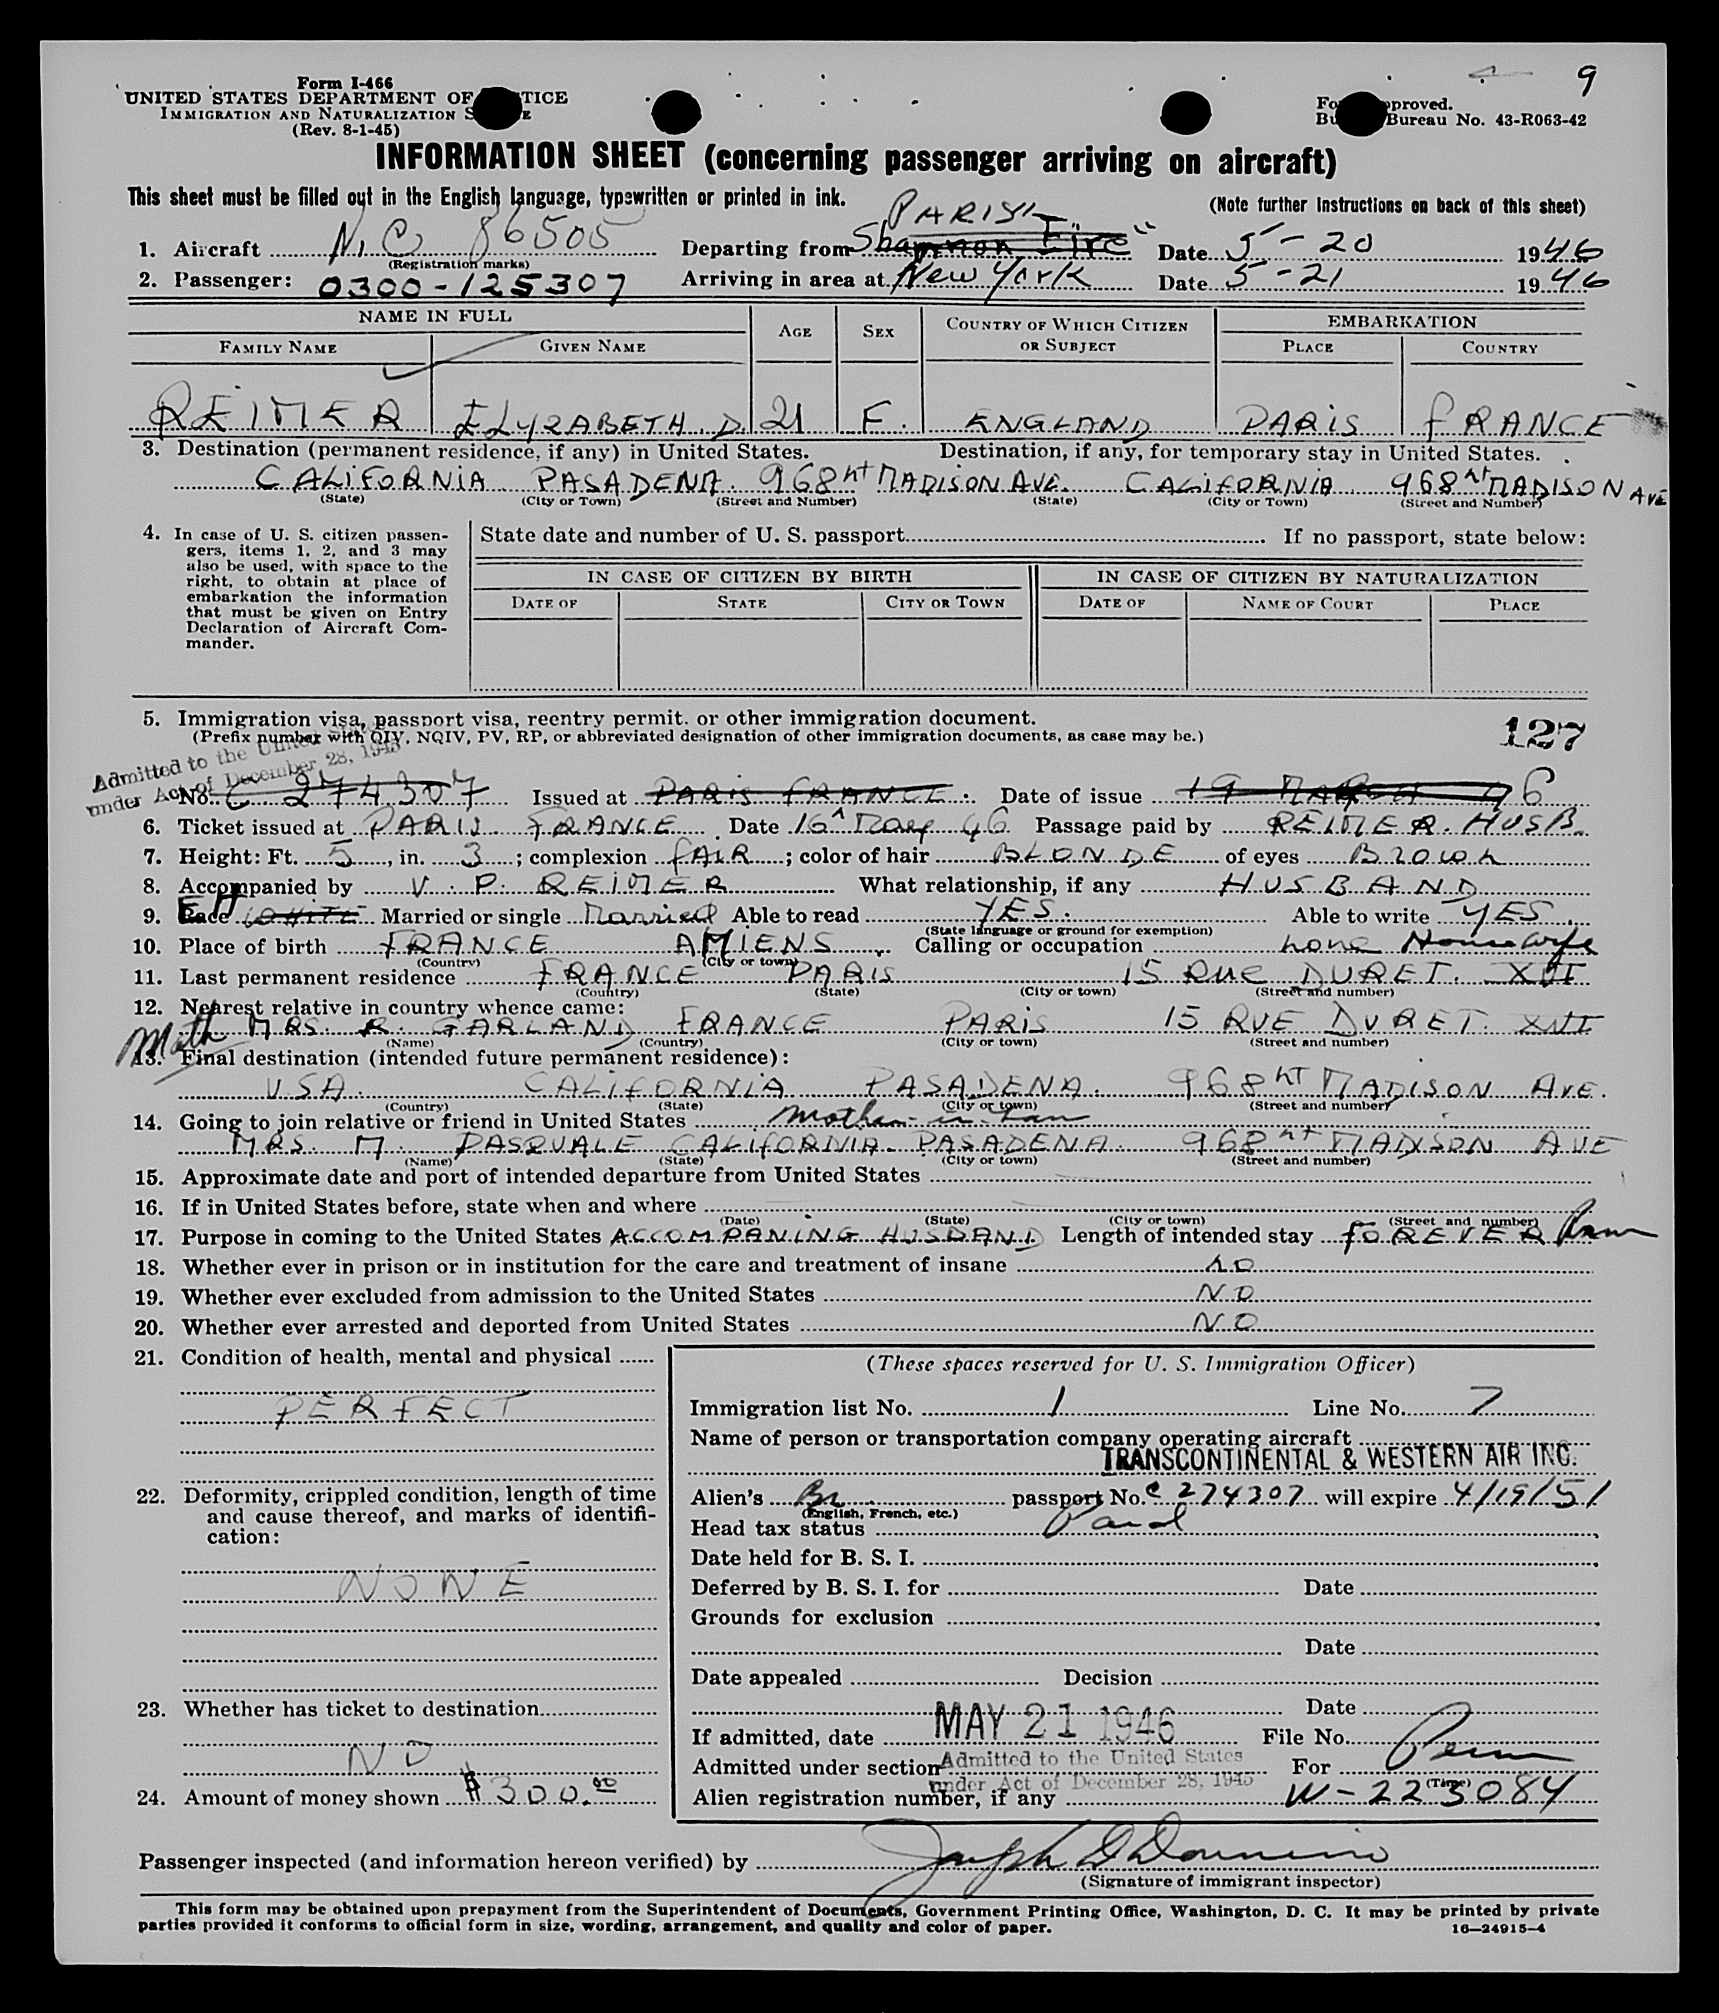 9
Form I-466
UNITED STATES DEPARTMENT OF TICE
IMMIGRATION AND NATURALIZATION S E
(Rev. 8-1-45)
Fo pproved.
Bu Bureau No. 43-R063-42
INFORMATION SHEET (concerning passenger arriving on aircraft)
This sheet must be filled out in the English language, typewritten or printed in ink.
(Note further instructions on back of this sheet)
PARIS
1. Aircraft N.C 86505 Departing from Shannon Eire Date 5-20 1946
(Registration marks)
2. Passenger: 0300-125307 Arriving in area at New York Date 5-21 1946
NAME IN FULL AGE SEX COUNTRY OF WHICH CITIZEN OR SUBJECT EMBARKATION
FAMILY NAME GIVEN NAME PLACE COUNTRY
REIMER ELYZABETH. D. 21 F. ENGLAND PARIS FRANCE
3. Destination (permanent residence, if any) in United States. Destination, if any, for temporary stay in United States.
CALIFORNIA PASADENA. 968 NT MADISON AVE. CALIFORNIA 968 NT MADISON AVE
(State) (City or Town) (Street and Number) (State) (City or Town) (Street and Number)
4. In case of U. S. citizen passen-
gers, items 1, 2, and 3 may
also be used, with space to the
right, to obtain at place of
embarkation the information
that must be given on Entry
Declaration of Aircraft Com-
mander.
State date and number of U. S. passport If no passport, state below:
IN CASE OF CITIZEN BY BIRTH IN CASE OF CITIZEN BY NATURALIZATION
DATE OF STATE CITY OR TOWN DATE OF NAME OF COURT PLACE
5. Immigration visa, passport visa, reentry permit, or other immigration document.
(Prefix number with QIV, NQIV, PV, RP, or abbreviated designation of other immigration documents, as case may be.)
127
Admitted to the United States
under Act of December 28, 1945
No. C 274307 Issued at PARIS FRANCE. Date of issue 19 MARCH 46
6. Ticket issued at PARIS FRANCE Date 16 May 46 Passage paid by REIMER. HUSB.
7. Height: Ft. 5, in. 3; complexion FAIR; color of hair BLONDE of eyes Brown
8. Accompanied by V. P. REIMER What relationship, if any HUSBAND
9. Race WHITE Married or single Married Able to read YES. Able to write YES.
(State language or ground for exemption)
10. Place of birth FRANCE AMIENS Calling or occupation none Housewife
(Country) (City or town)
11. Last permanent residence FRANCE PARIS 15 Rue DURET. XVI
(Country) (State) (City or town) (Street and number)
12. Nearest relative in country whence came:
Moth MRS. R. GARLAND FRANCE PARIS 15 RUE DURET. XVI
(Name) (Country) (City or town) (Street and number)
13. Final destination (intended future permanent residence):
USA. CALIFORNIA PASADENA. 968 NT MADISON AVE.
(Country) (State) (City or town) (Street and number)
14. Going to join relative or friend in United States mother-in-law
MRS. M. PASQUALE CALIFORNIA. PASADENA. 968 NT MADISON AVE
(Name) (State) (City or town) (Street and number)
15. Approximate date and port of intended departure from United States
16. If in United States before, state when and where
(Date) (State) (City or town) (Street and number)
17. Purpose in coming to the United States ACCOMPANING HUSBAND Length of intended stay FOREVER Perm
18. Whether ever in prison or in institution for the care and treatment of insane NO
19. Whether ever excluded from admission to the United States NO
20. Whether ever arrested and deported from United States NO
21. Condition of health, mental and physical
PERFECT
22. Deformity, crippled condition, length of time
and cause thereof, and marks of identifi-
cation:
NONE
23. Whether has ticket to destination
NO
24. Amount of money shown $300.00
(These spaces reserved for U. S. Immigration Officer)
Immigration list No. 1 Line No. 7
Name of person or transportation company operating aircraft
TRANSCONTINENTAL & WESTERN AIR INC.
Alien's Br. passport No. C 274307 will expire 4/19/51
(English, French, etc.)
Head tax status Paid
Date held for B. S. I.
Deferred by B. S. I. for Date
Grounds for exclusion
Date
Date appealed Decision
Date
If admitted, date MAY 21 1946 File No.
Admitted under section Admitted to the United States For Perm
under Act of December 28, 1945 (Time)
Alien registration number, if any W-223084
Passenger inspected (and information hereon verified) by Joseph D
(Signature of immigrant inspector)
This form may be obtained upon prepayment from the Superintendent of Documents, Government Printing Office, Washington, D. C. It may be printed by private
parties provided it conforms to official form in size, wording, arrangement, and quality and color of paper. 16—24915-4